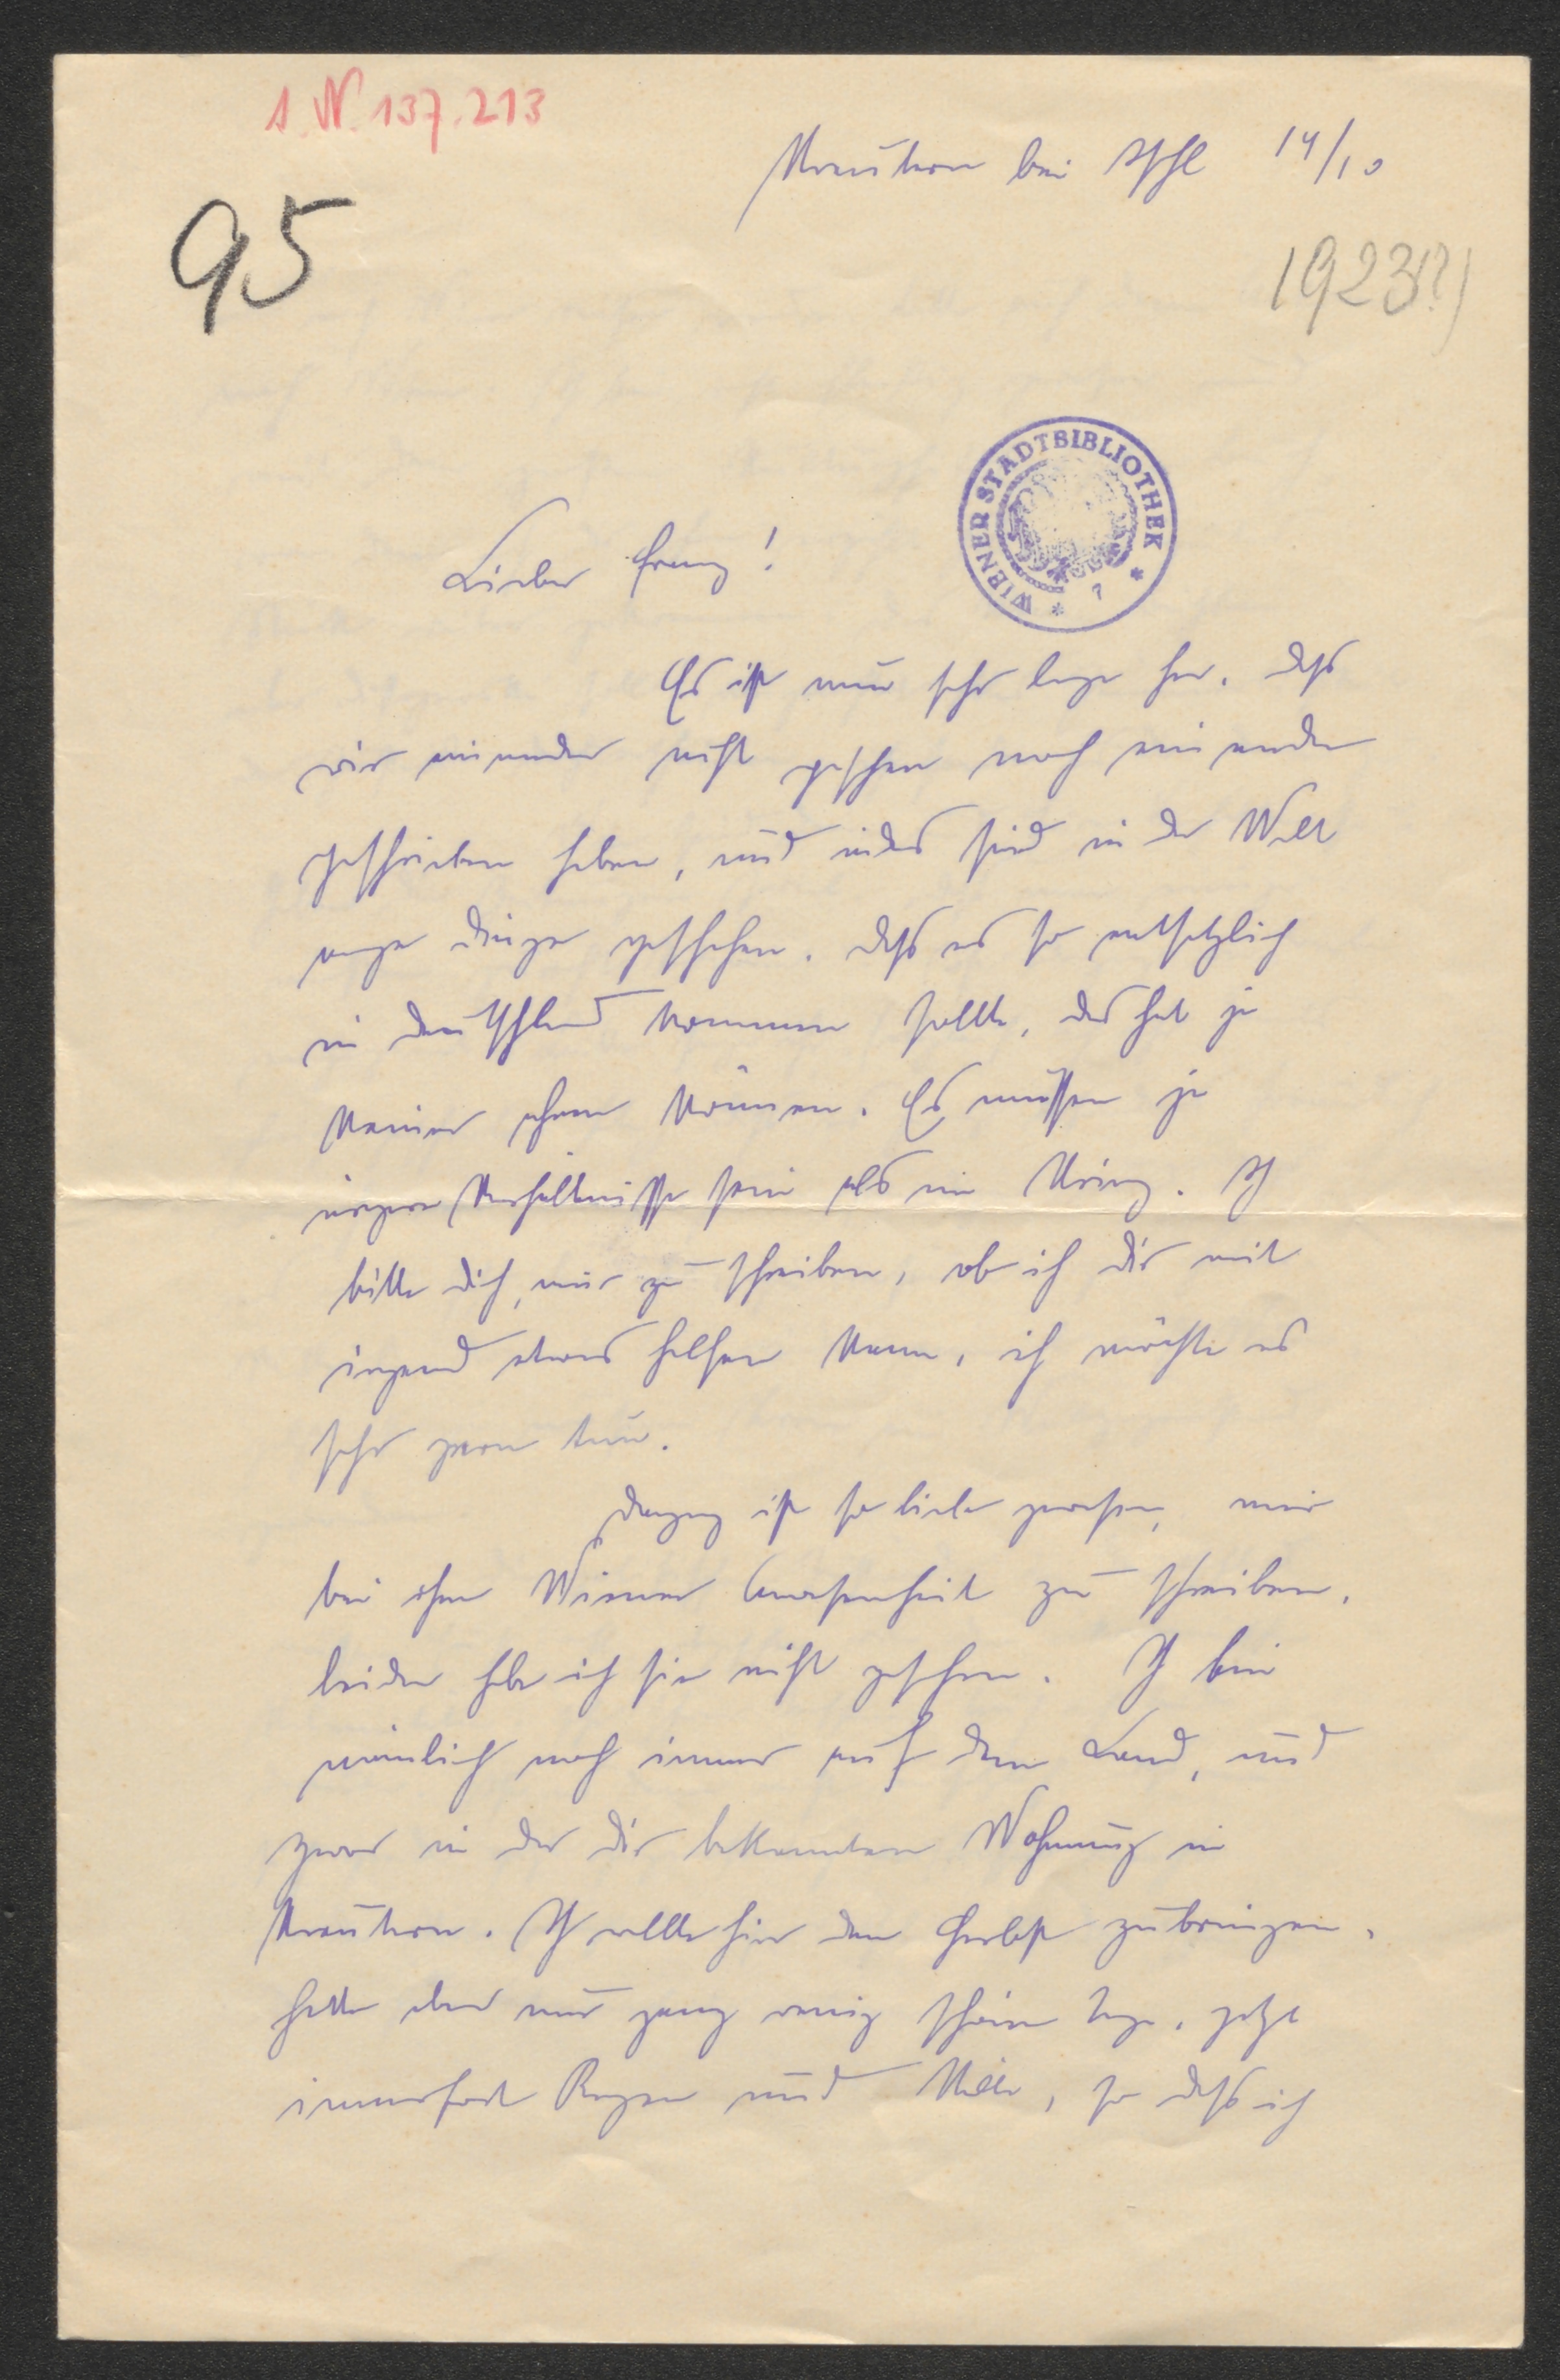 1. N. 137.213
Kreutern bei Ischl 14/10
95
1923(?)
WIENER STADTBIBLIOTHEK * 7 *
Lieber Franz!
Es ist nun sehr lange her, dass
wir einander nicht gesehen noch einander
geschrieben haben, und indes sind in der Welt
arge Dinge geschehen. Dass es so entsetzlich
in Deutschland kommen sollte, das hat ja
keiner ahnen können. Es müssen ja
ärgere Verhältnisse sein als im Krieg. Ich
bitte dich, mir zu schreiben, ob ich dir mit
irgend etwas helfen kann, ich möchte es
sehr gern tun.
ist so lieb gewesen, mir
bei ihrer Wiener Anwesenheit zu schreiben,
leider habe ich sie nicht gesehen. Ich bin
nämlich noch immer auf dem Land, und
zwar in der dir bekannten Wohnung in
Kreutern. Ich wollte hier den Herbst zubringen,
hatte aber nur ganz wenig schöne Tage, jetzt
immerfort Regen und Kälte, so dass ich